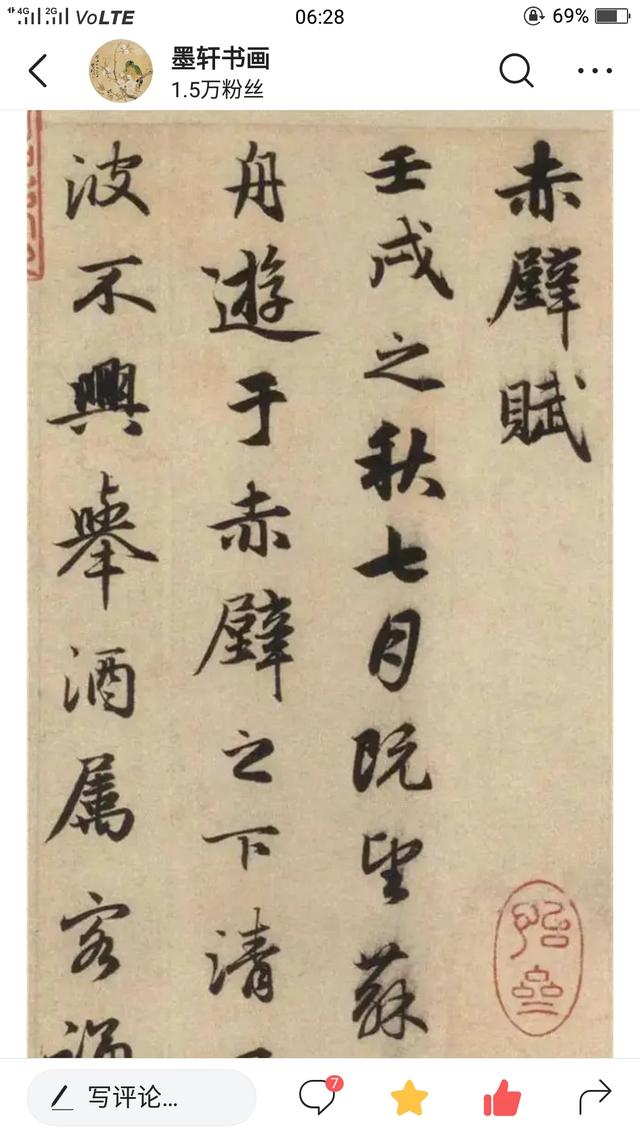 4G 2G VoLTE 06:28 69%
墨轩书画
1.5万粉丝
赤壁賦
壬戌之秋七月既望蘇
舟遊于赤壁之下清
波不興舉酒属客誦
写评论...
7